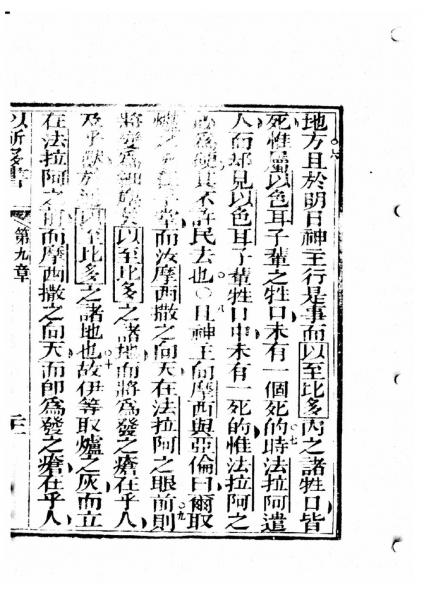 地方且於明日神主行是事而以至比多內之諸牲口皆
死惟屬以色耳子輩之牲口未有一個死的時法拉阿遣
人而却見以色耳子輩牲口中未有一死的惟法拉阿之
心為硬其不許民去也〇且神主向摩西與亞倫曰爾取
爐之灰 而汝摩西撒之向天在法拉阿之眼前則
將變為 以至比多之諸地而將為發之瘡在乎人
及乎獸於 至比多之諸地也故伊等取爐之灰而立
在法拉阿之前而摩西撒之向天而即為發之瘡在乎人
第九章